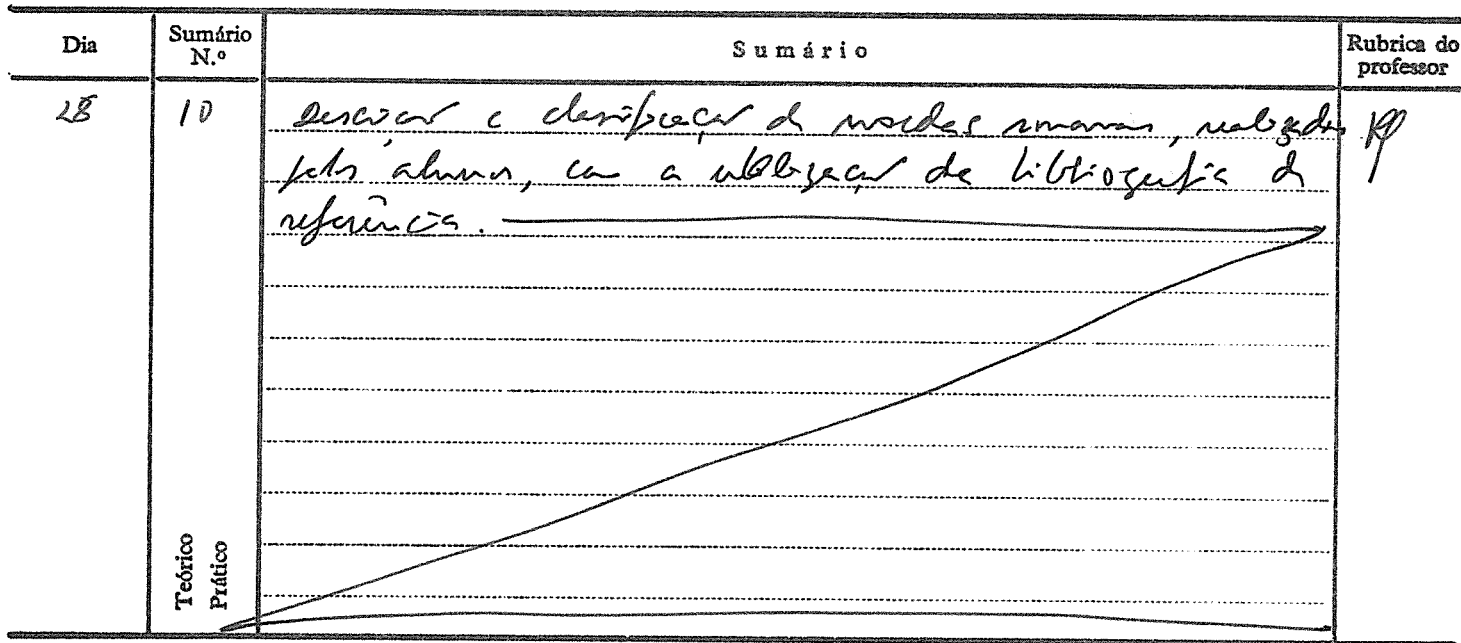 Dia
Sumário N.º
Sumário
Rubrica do professor
28
10
Descrição e classificação de moedas romanas, realizadas
pelos alunos, com a utilização da bibliografia de
referência.
Teórico
Prático